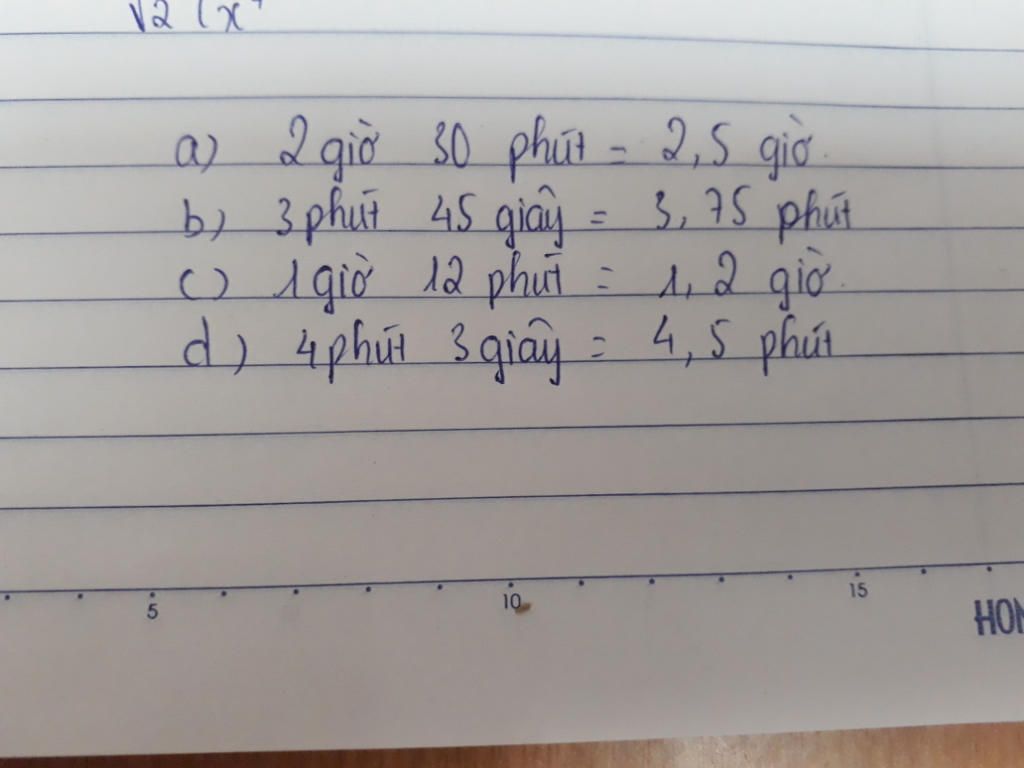 √2 (x
a) 2 giờ 30 phút = 2,5 giờ.
b) 3 phút 45 giây = 3,75 phút
c) 1 giờ 12 phút = 1,2 giờ.
d) 4 phút 3 giây = 4,5 phút
5 10 15
HON